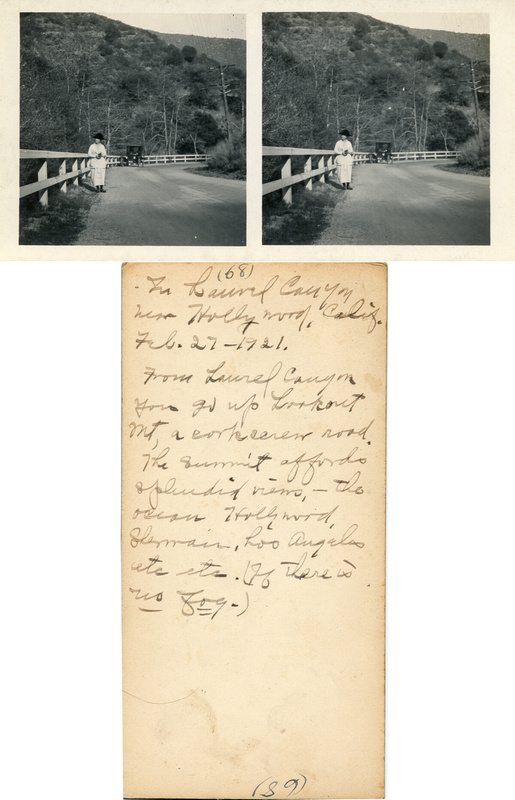 (68)
In Laurel Canyon
near Hollywood, Calif.
Feb. 27-1921.
From Laurel Canyon
you go up Lookout
Mt, a corkscrew road.
The summit affords
splendid views, - the
ocean Hollywood,
Sherman, Los Angeles
etc etc. (If there is
no fog.)
(39)